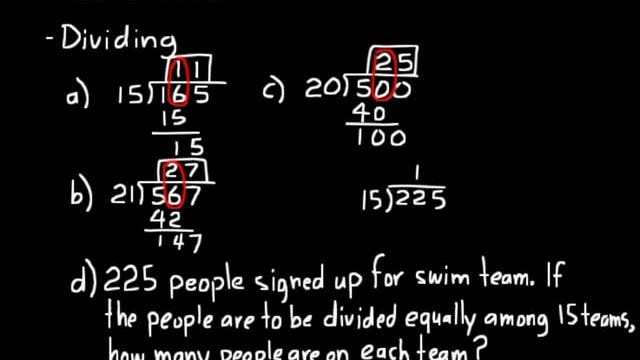 - Dividing
a) 11
15)165
15
15
b) 27
21)567
42
147
c) 25
20)500
40
100
1
15)225
d) 225 people signed up for swim team. If
the people are to be divided equally among 15 teams,
how many people are on each team?